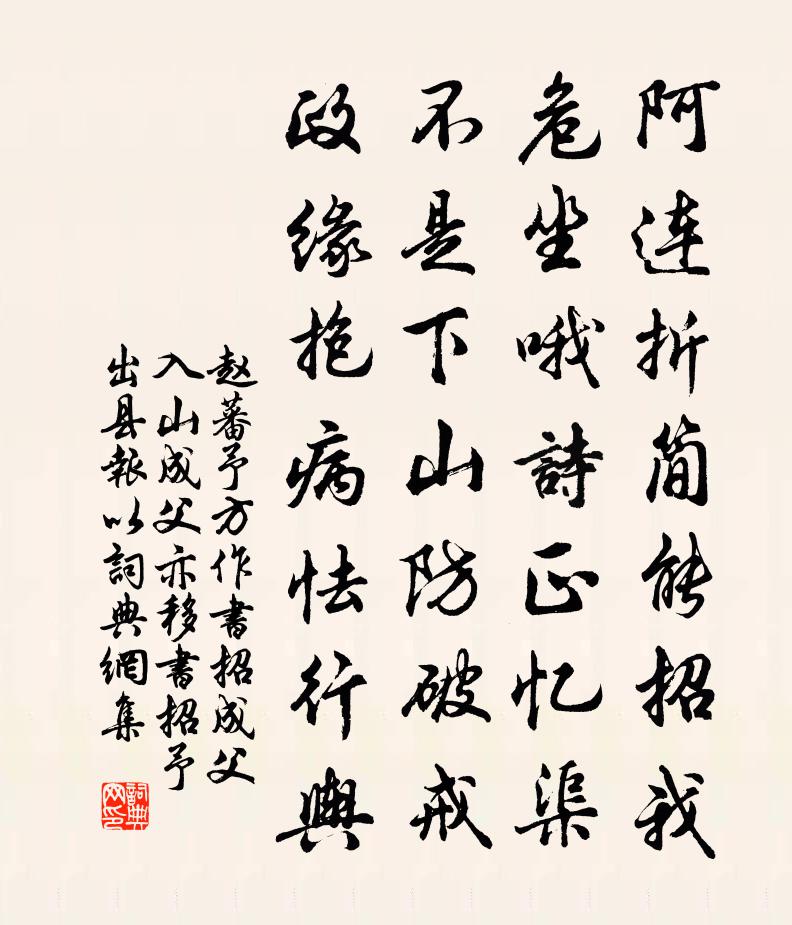 阿連折简能招我
危坐哦詩正忆渠
不是下山防破戒
政缘抱病怯行輿
赵蕃予方作書招成父
入山成父亦移書招予
出县報以詞典網集
詞典
网印